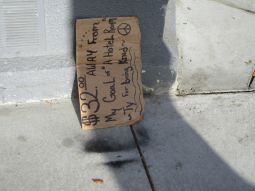 $32.00
AWAY From
My Goal of A Hotel Room
Ty For being Kind